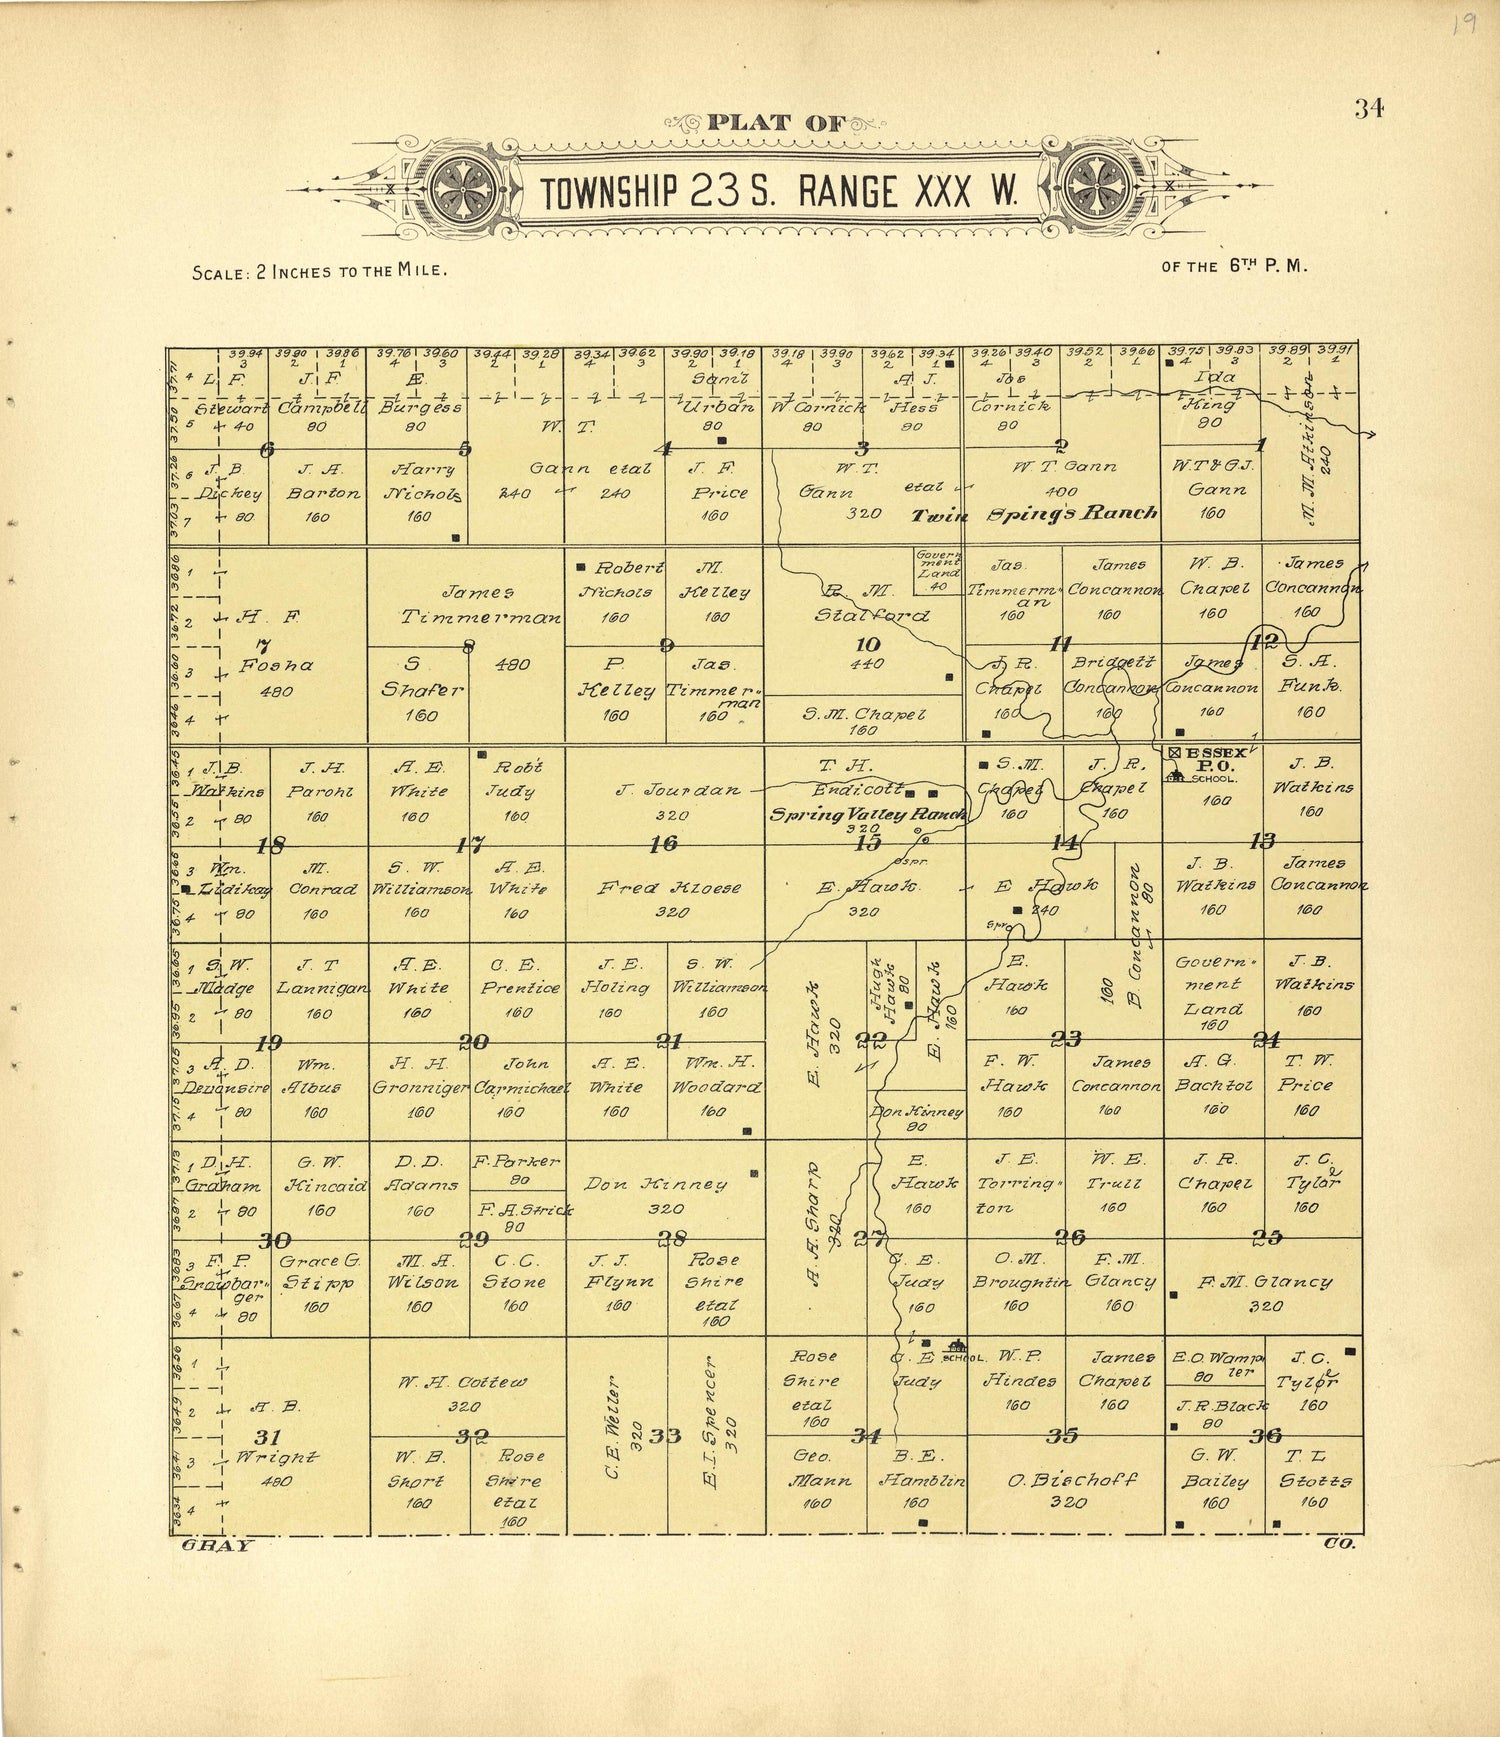 19
34
PLAT OF
TOWNSHIP 23 S. RANGE XXX W.
SCALE: 2 INCHES TO THE MILE.
OF THE 6TH P. M.
39.94 39.90 39.86 39.76 39.60 39.44 39.28 39.34 39.62 39.90 39.18 39.18 39.90 39.62 39.34 39.26 39.40 39.52 39.66 39.75 39.83 39.89 39.91
3 2 1 4 3 2 1 4 3 2 1 4 3 2 1 4 3 2 1 4 3 2 1
4 L. F. J. F. Æ. Sam'l A. J. Jos Ida
Stewart Campbell Burgess Urban W Cornick Hess Cornick King
5 40 80 80 W. T. 80 80 80 80 80
6 5 4 3 2 1
M. M. Atkinson
240
6 J. B. J. A. Harry Gann etal J. F. W. T. etal W T. Gann W.T & G.J.
Dickey Barton Nichols 240 240 Price Gann 400 Gann
7 80 160 160 160 320 Twin Spings Ranch 160
Government Land
40
1 Robert M. Jas. James W. B. James
James Nichols Kelley R. M. Timmerman Concannon Chapel Concannon
2 H. F. Timmerman 160 160 Stalford 160 160 160 160
7 8 9 10 11 12
3 Fosha S 480 P. Jas. 440 J. R. Bridgett James S. A.
480 Shafer Kelley Timmerman Chapel Concannon Concannon Funk.
4 160 160 160 S. M. Chapel 160 160 160 160
160
1 J. B. J. H. A. E. Robt T. H. S. M. J. R. ESSEX J. B.
Watkins Parohl White Judy J. Jourdan Endicott Chapel Chapel P.O. Watkins
SCHOOL.
2 80 160 160 160 320 Spring Valley Ranch 160 160 160 160
320
18 17 16 15 14 13
Spr.
3 Wm. M. S. W. A. E. J. B. James
Lidikay Conrad Williamson White Fred Kloese E. Hawk. E Hawk Watkins Concannon
4 80 160 160 160 320 320 240 160 160
Spr
B Concannon
80
160
1 S. W. J. T A. E. C. E. J. E. S. W. E. Government Land J. B.
Madge Lannigan White Prentice Holing Williamson Hawk 160 Watkins
2 80 160 160 160 160 160 160 160
E. Hawk
320
Hugh Hawk
80
E. Hawk
160
19 20 21 22 23 24
3 A. D. Wm. H. H. John A. E. Wm. H. F. W. James A. G. T. W.
Devonsire Albus Gronniger Carmichael White Woodard Hawk Concannon Bachtol Price
4 80 160 160 160 160 160 Don Kinney 160 160 160 160
80
1 D. H. G. W. D. D. F. Parker E. J. E. W. E. J. R. J. C.
Graham Kincaid Adams 80 Don Kinney Hawk Torrington Trull Chapel Tyler
2 80 160 160 F. A. Strick 320 160 160 160 160
80
A. A. Sharp
320
30 29 28 27 26 25
3 F. P. Grace G. M. A. C. C. J. J. Rose C. E. O. M. F. M.
Snowbarger Stipp Wilson Stone Flynn Shire Judy Broughtin Glancy F. M. Glancy
4 80 160 160 160 160 etal 160 160 160 320
160
1 W. H. Cottew Rose C. E SCHOOL. W. P. James E. O. Wampler J. C.
320 Shire Judy Hindes Chapel 80 Tyler
2 A. B. etal 160 160 J. R. Black 160
160 80
C. E. Weller
320
E. I. Spencer
320
31 32 33 34 35 36
3 Wright W. B. Rose Geo. B. E. G. W. T. L
480 Short Shire Mann Hamblin O. Bischoff Bailey Stotts
4 160 etal 160 160 320 160 160
160
GRAY CO.